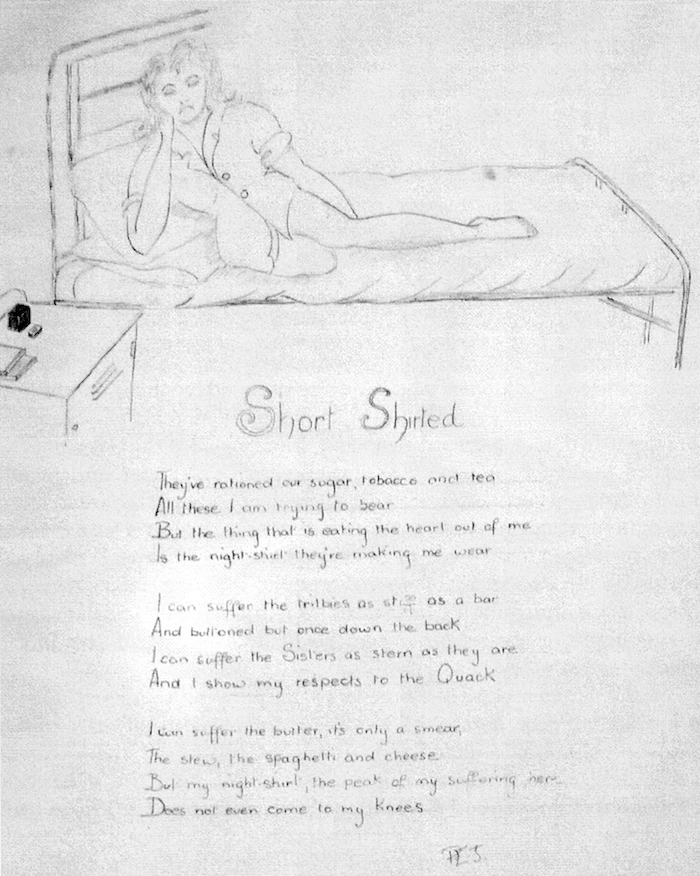 Short Shirted
They've rationed our sugar, tobacco and tea
All these I am trying to bear
But the thing that is eating the heart out of me
Is the night-shirt they're making me wear
I can suffer the trilbies as stiff as a bar
And buttoned but once down the back
I can suffer the Sisters as stern as they are
And I show my respects to the Quack
I can suffer the butter, it's only a smear,
The stew, the spaghetti and cheese
But my night-shirt, the peak of my suffering here
Does not even come to my knees